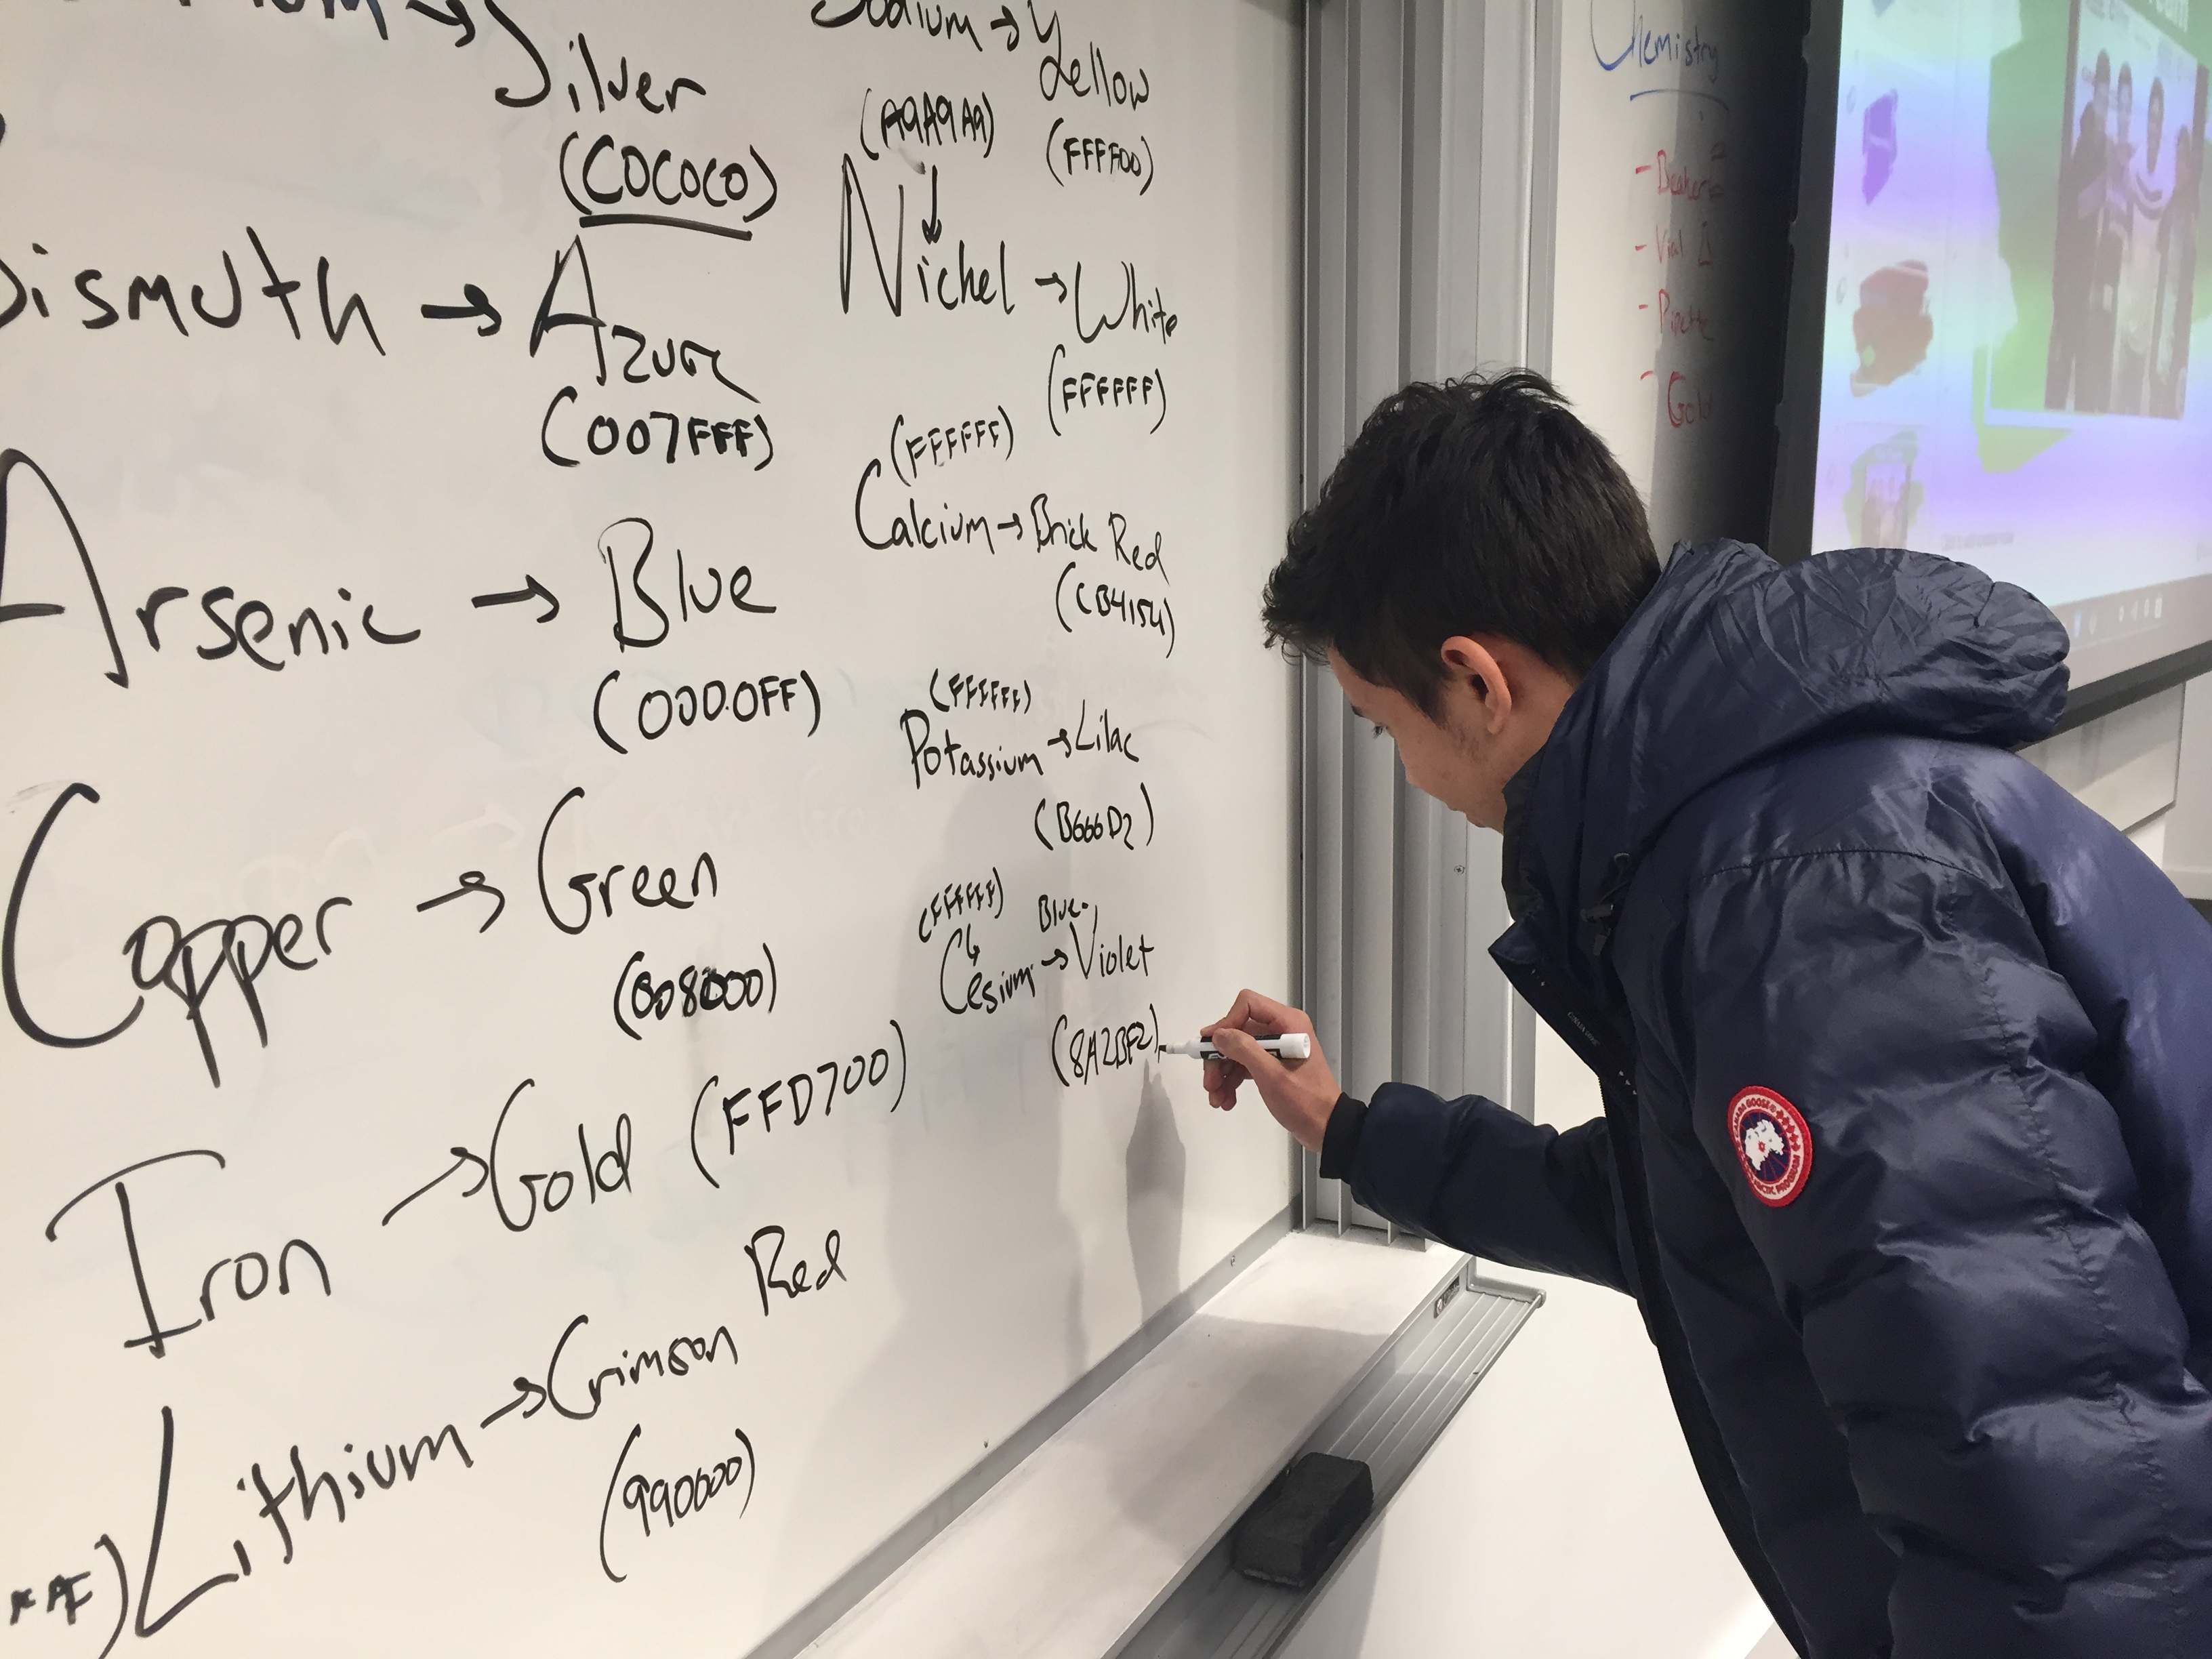 Silver
(C0C0C0)
Bismuth → Azure
(007FFF)
Arsenic → Blue
(0000FF)
Copper → Green
(008000)
Iron → Gold (FFD700)
Lithium → Crimson Red
(990000)
Sodium → Yellow
(A9A9A9)
(FFFF00)
Nickel → White
(FFFFFF)
(FFFFFF)
Calcium → Brick Red
(CB4154)
(FFFFFF)
Potassium → Lilac
(B666D2)
(FFFFFF)
Blue-
Cesium → Violet
(8A2BE2)
Chemistry
- Beaker
- Vial
- Pipette
- Gold
CANADA GOOSE
ARCTIC PROGRAM